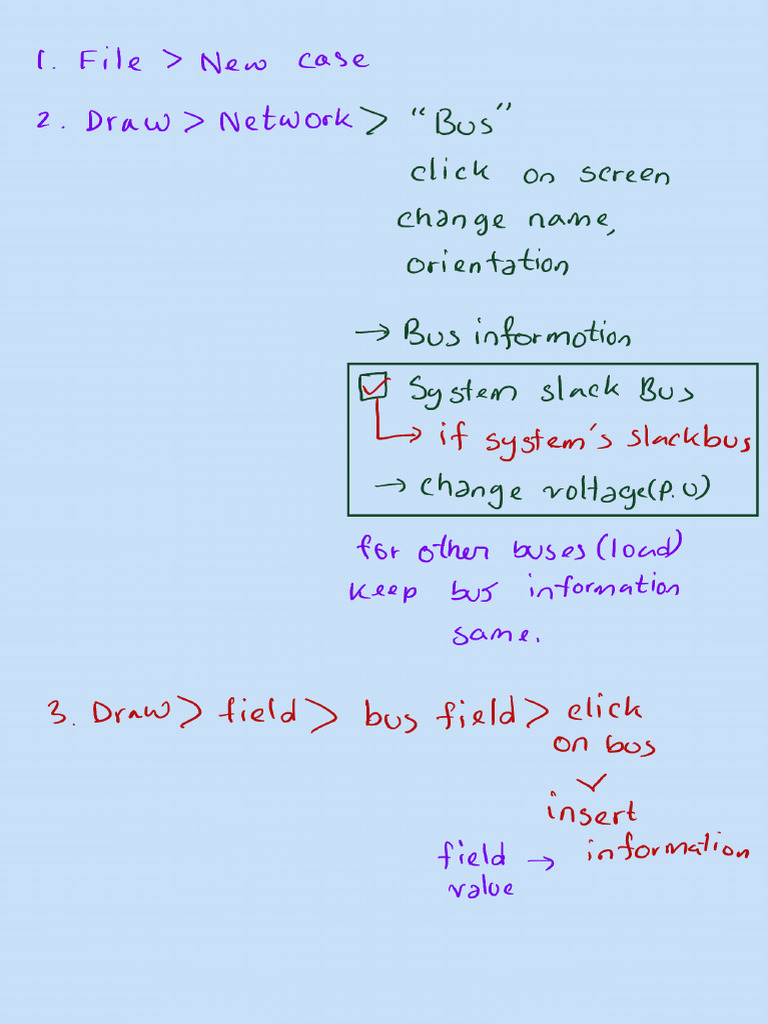 1. File > New case
2. Draw > Network > "Bus"
click on screen
change name,
orientation
→ Bus informotion
☑ System slack Bus
→ if system's slackbus
→ change voltage(P.U)
for other buses (load)
keep bus information
same.
3. Draw > field > bus field > click
on bus
insert
field → information
value